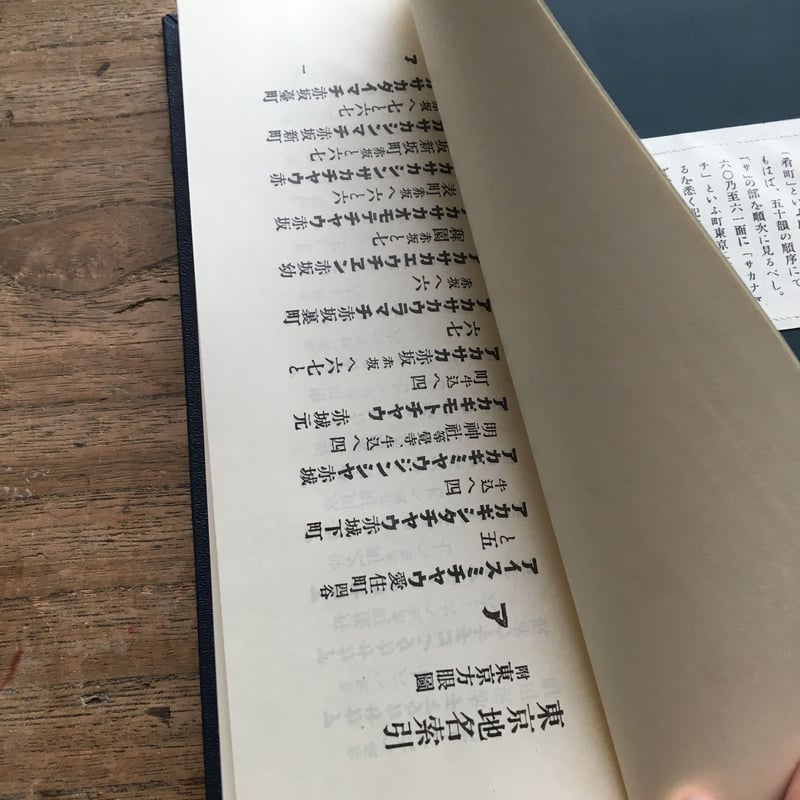 東京地名索引
附東京方眼圖
ア
アイスミチヤウ愛住町四谷
と五
アカギシタチヤウ赤城下町
牛込へ四
アカギミヤウジンジヤ赤城
明神社等覺寺、牛込へ四
アカギモトチヤウ赤城元
町牛込へ四
アカサカ赤坂赤坂へ六七と
六七
アカサカウラマチ赤坂裏町
赤坂へ六
アカサカエウチヱン赤坂幼
稚園赤坂と七
カサカオモテチヤウ赤坂
表町赤坂へ六と六
カサカシンサカチヤウ赤
坂新坂町赤坂と六七
カサカシンマチ赤坂新町
坂へ七と六七
サカダイマチ赤坂臺町
ア
一
「肴町」といふ
もはば、五十韻の順序にて
「サ」の部を順次に見るべし。
六〇乃至六一面に「サカナマ
チ」といふ町東京に
るを悉く記